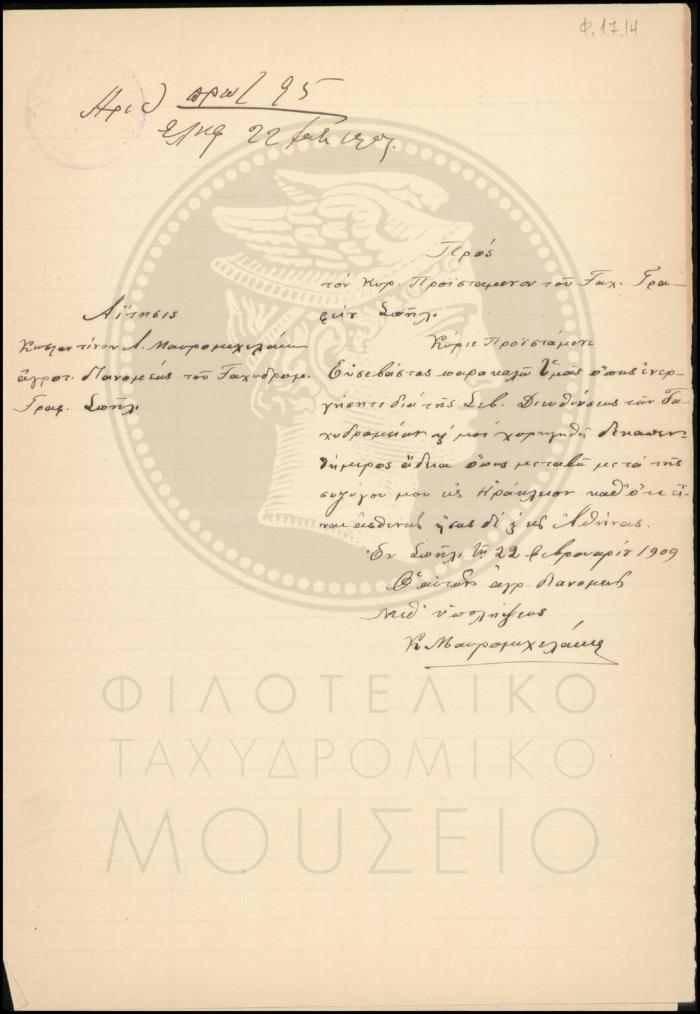 Φ. 17.14
Αριθ πρωτ 95
ελήφ 22 Φεβ 1909.
Πρὸς
τὸν Κύρ. Προϊστάμενον τοῦ Ταχ. Γρα-
φείου Σπηλ.
Αἴτησις
Κωνσταντίνου Λ. Μαυρομιχελάκη
ἀγροτ. διανομέως τοῦ Ταχυδρομ.
Γραφ. Σπηλ.
Κύριε Προϊστάμενε
Εὐσεβάστως παρακαλῶ Ὑμᾶς ὅπως ἐνερ-
γήσητε διὰ τῆς Σεβ. Διευθύνσεως τῶν Τα-
χυδρομείων μοὶ χορηγηθῇ δεκαπεν-
θήμερος ἄδεια ὅπως μεταβῶ μετὰ τῆς
συζύγου μου εἰς Ηράκλειον καθ' ὅτι εἶ-
ναι ἀσθενὴς Ἀθήνας.
Ἐν Σπηλ. τῇ 22 Φεβρουαρίου 1909
Ὁ αἰτῶν ἀγρ. διανομεὺς
Μεθ' ὑπολήψεως
Κ Μαυρομιχελάκης
ΦΙΛΟΤΕΛΙΚΟ
ΤΑΧΥΔΡΟΜΙΚΟ
ΜΟΥΣΕΙΟ